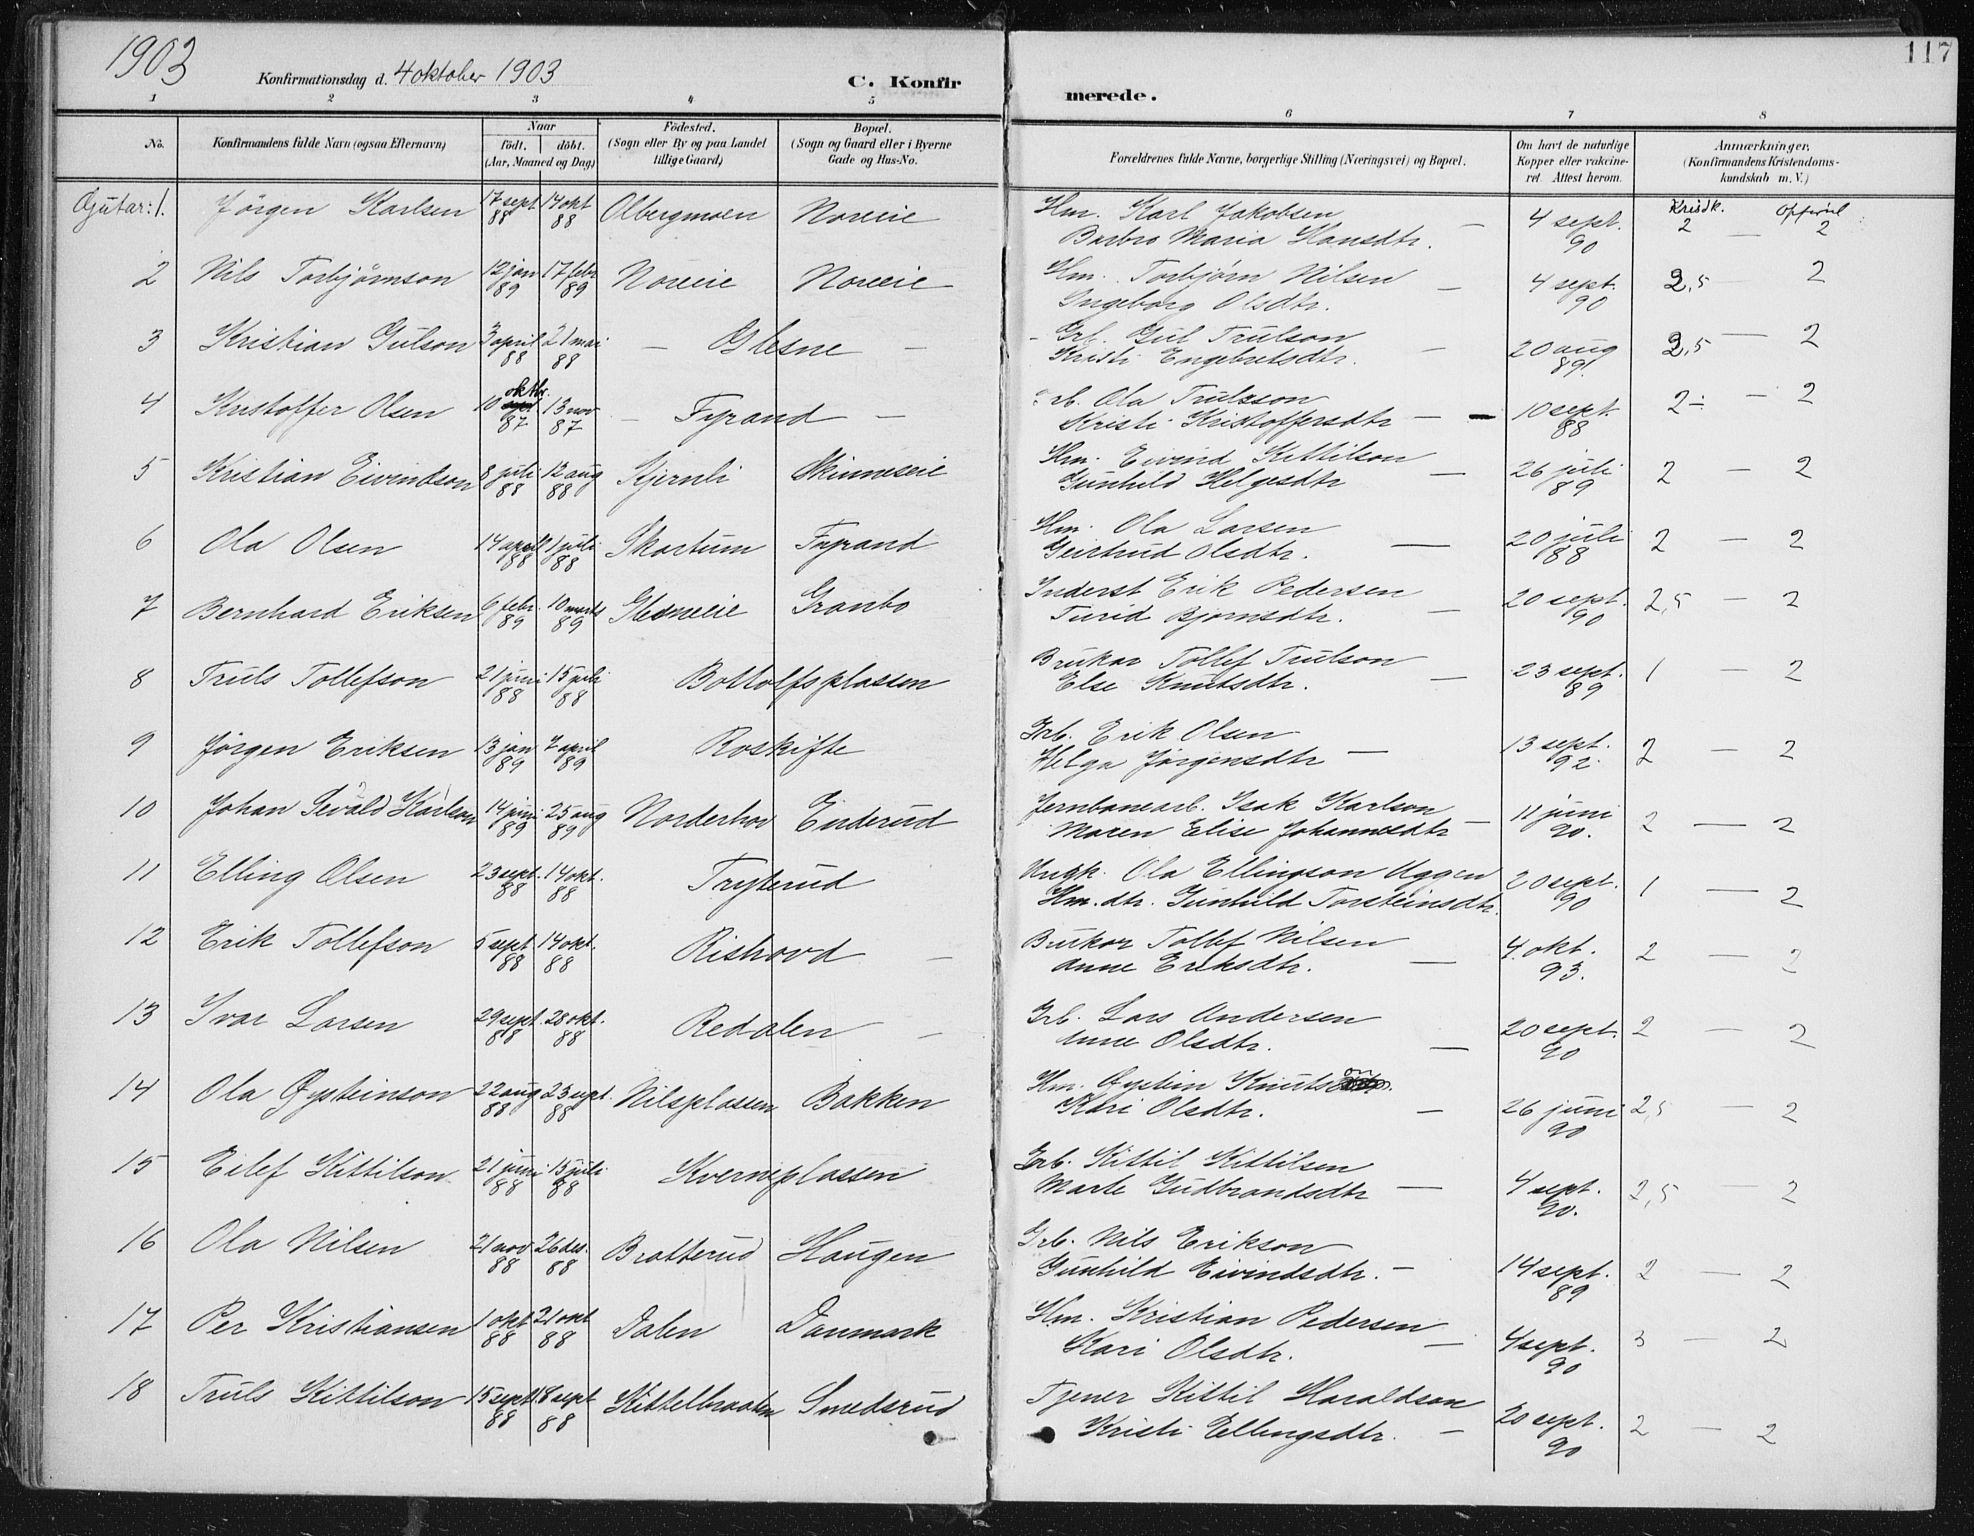 1903
117
Konfirmationsdag d. 4 oktober 1903
C. Konfirmerede.
1 2 3 4 5 6 7 8
No. Konfirmandens fulde Navn (ogsaa Efternavn) Naar födt. döbt. (Aar, Maaned og Dag) Födested. (Sogn eller By og paa Landet tillige Gaard) Bopæl. (Sogn og Gaard eller i Byerne Gade og Hus-No. Forældrenes fulde Navne, borgerlige Stilling (Næringsvei) og Bopæl. Om havt de naturlige Kopper eller vakcineret. Attest herom. Anmærkninger. (Konfirmandens Kristendomskundskab m. V.)
Gjutar: 1. Jörgen Karlsen 17 sept 88 14 okt 88 Olbergmoen Noreeie Hm. Karl Jakobsen — 4 sept. 90 Krisdk. 2 — 2
Barbro Maria Hansdtr.
2 Nils Torbjörnson 12 jan 89 17 febr 89 Noreeie Noreeie Hm. Torbjörn Nilsen — 4 sept. 90 2,5 — 2
Ingeborg Olsdtr.
3 Kristian Gulson 3 april 88 21 mai 88 — Glesne — Grb. Gul Trulson — 20 aug 89 2,5 — 2
Kristi Engebretsdtr.
4 Kristoffer Olsen 10 oktbr. 87 13 nov 87 — Fyrand — Grb. Ola Trulsson 10 sept. 88 2÷ — 2
Kristi Kristoffersdtr —
5 Kristian Eivindson 8 juli 88 12 aug 88 Stjernli Skinneseie Hm. Eivind Kittilson — 26 juli 89 2 — 2
Gunhild Helgesdtr
6 Ola Olsen 14 april 88 1 juli 88 Skartum Fyrand Hm. Ola Larsen — 20 juli 88 2 — 2
Geirtrud Olsdtr.
7 Bernhard Eriksen 6 febr. 89 10 marts 89 Glesneeie Granbo Inderst Erik Pedersen — 20 sept. 90 2,5 — 2
Turid Bjornsdtr.
8 Truls Tollefson 21 juni 88 15 juli 88 Bottolfsplassen Brukar Tollef Trulson — 23 sept. 89 1 — 2
Else Knutsdtr.
9 Jörgen Eriksen 13 jan 89 7 april 89 Roskifte Grb. Erik Olsen 13 sept. 92. 2 — 2
Helga Jörgensdtr —
10 Johan Sevald Karlson 14 juni 89 25 aug 89 Norderhov Enderud Jernbanearb. Isak Karlson — 11 juni 90. 2 — 2
Maren Elise Johannesdtr
11 Elling Olsen 23 sept. 88 14 okt. 88 Tryterud Ungk. Ola Ellingson Uggen 20 sept. 90 1 — 2
Hm. dtr. Gunhild Torsteinsdtr.
12 Erik Tollefson 5 sept 88 14 okt. 88 Rishovd — Brukar Tollef Nilsen — 4. okt. 93. 2 — 2
Anne Eriksdtr.
13 Ivar Larsen 29 sept. 88 28 okt. 88 Redalen — Grb. Lars Andersen 20 sept. 90 2 — 2
Anne Olsdtr. —
14 Ola Øysteinson 22 aug 88 23 sept. 88 Nilsplassen Bakken Hm. Øystein Knutson 26 juni 90 2,5 — 2
Kari Olsdtr. —
15 Eilef Kittilson 21 juni 88 15 juli 88 Kverneplassen Grb. Kittil Kittilsen 4 sept. 90. 2,5 — 2
Marte Gudbrandsdtr —
16 Ola Nilsen 21 nov 88 26 des. 88 Bratterud Haugen Grb. Nils Erikson 14 sept. 89 2 — 2
Gunhild Eivindsdtr. —
17 Per Kristiansen 1 okt 88 21 okt 88 Dalen Danmark Hm. Kristian Pedersen 4 sept. 90 3 — 2
Kari Olsdtr. —
18 Truls Kittilson 15 sept. 88 18 sept 88 Kittelbraaten Smedsrud Tjener Kittil Haraldson 20 sept. 90 2 — 2
Kristi Ellingsdtr. —